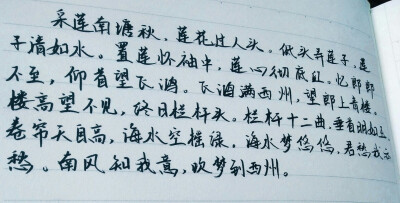 采莲南塘秋，莲花过人头。低头弄莲子，莲
子清如水。置莲怀袖中，莲心彻底红。忆郎郎
不至，仰首望飞鸿。飞鸿满西州，望郎上青楼。
楼高望不见，终日栏杆头。栏杆十二曲，垂手明如玉。
卷帘天自高，海水空摇绿。海水梦悠悠，君愁我亦
愁。南风知我意，吹梦到西州。